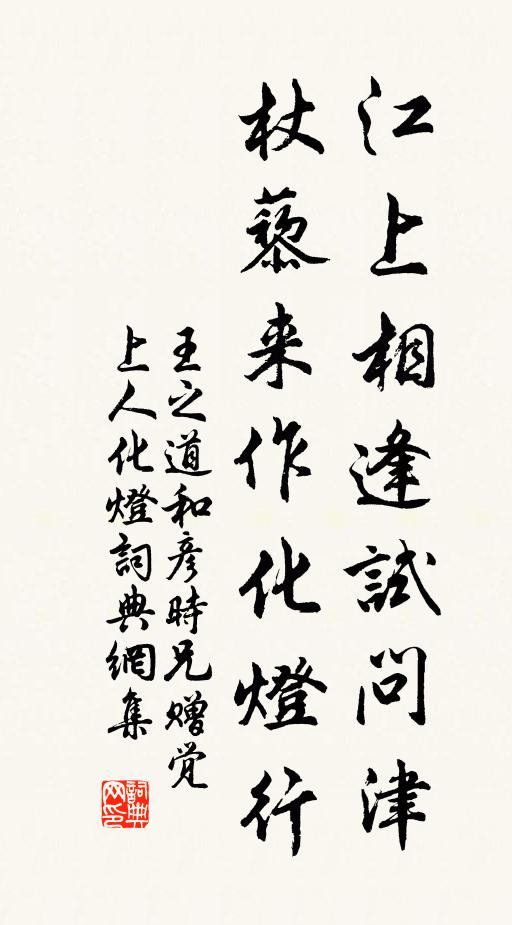 江上相逢試問津
杖藜来作化燈行
王之道和彦時兄赠觉
上人化燈詞典網集
詞典网印